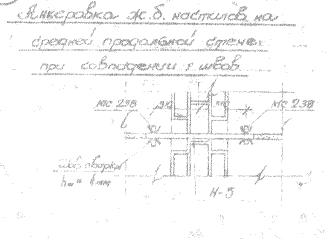 Анкеровка ж.б. настилов на
средней продольной стене
при совпадении швов.
МС 238
МС 238
шов сварки
Н-5